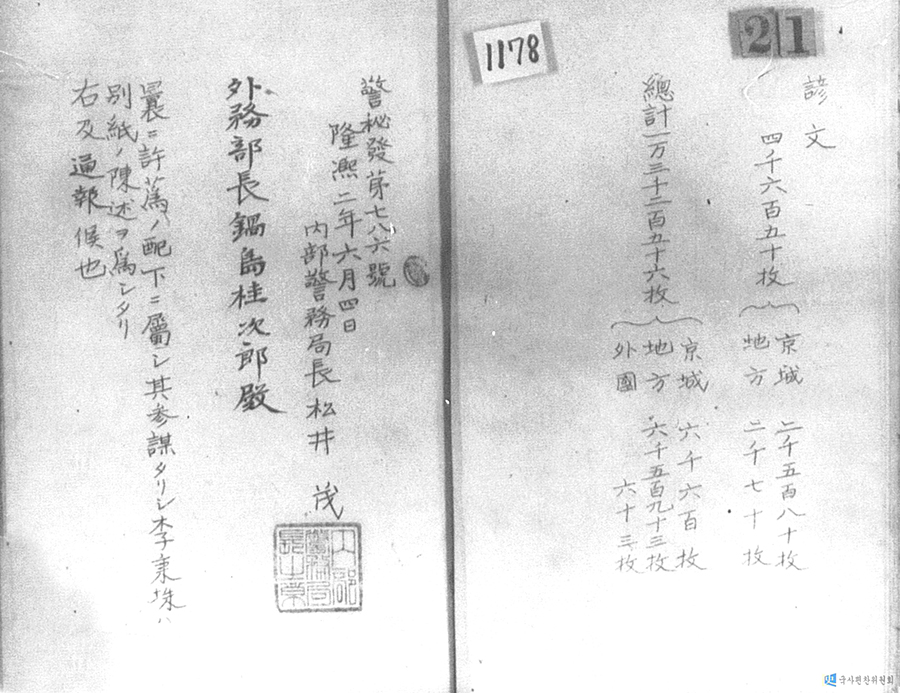 21
諺文
四千六百五十枚
京城 二千五百八十枚
地方 二千七十枚
總計一万三千二百五十六枚
京城 六千六百枚
地方 六千五百九十三枚
外國 六十三枚
1178
警秘發第七八六號
隆熙二年六月四日
內部警務局長松井 茂
外務部長鍋島桂次郎殿
曩ニ許蔿ノ配下ニ屬シ其參謀タリシ李秉埰ハ
別紙ノ陳述ヲ爲シタリ
右及通報候也
內部警務局長之章
국사편찬위원회